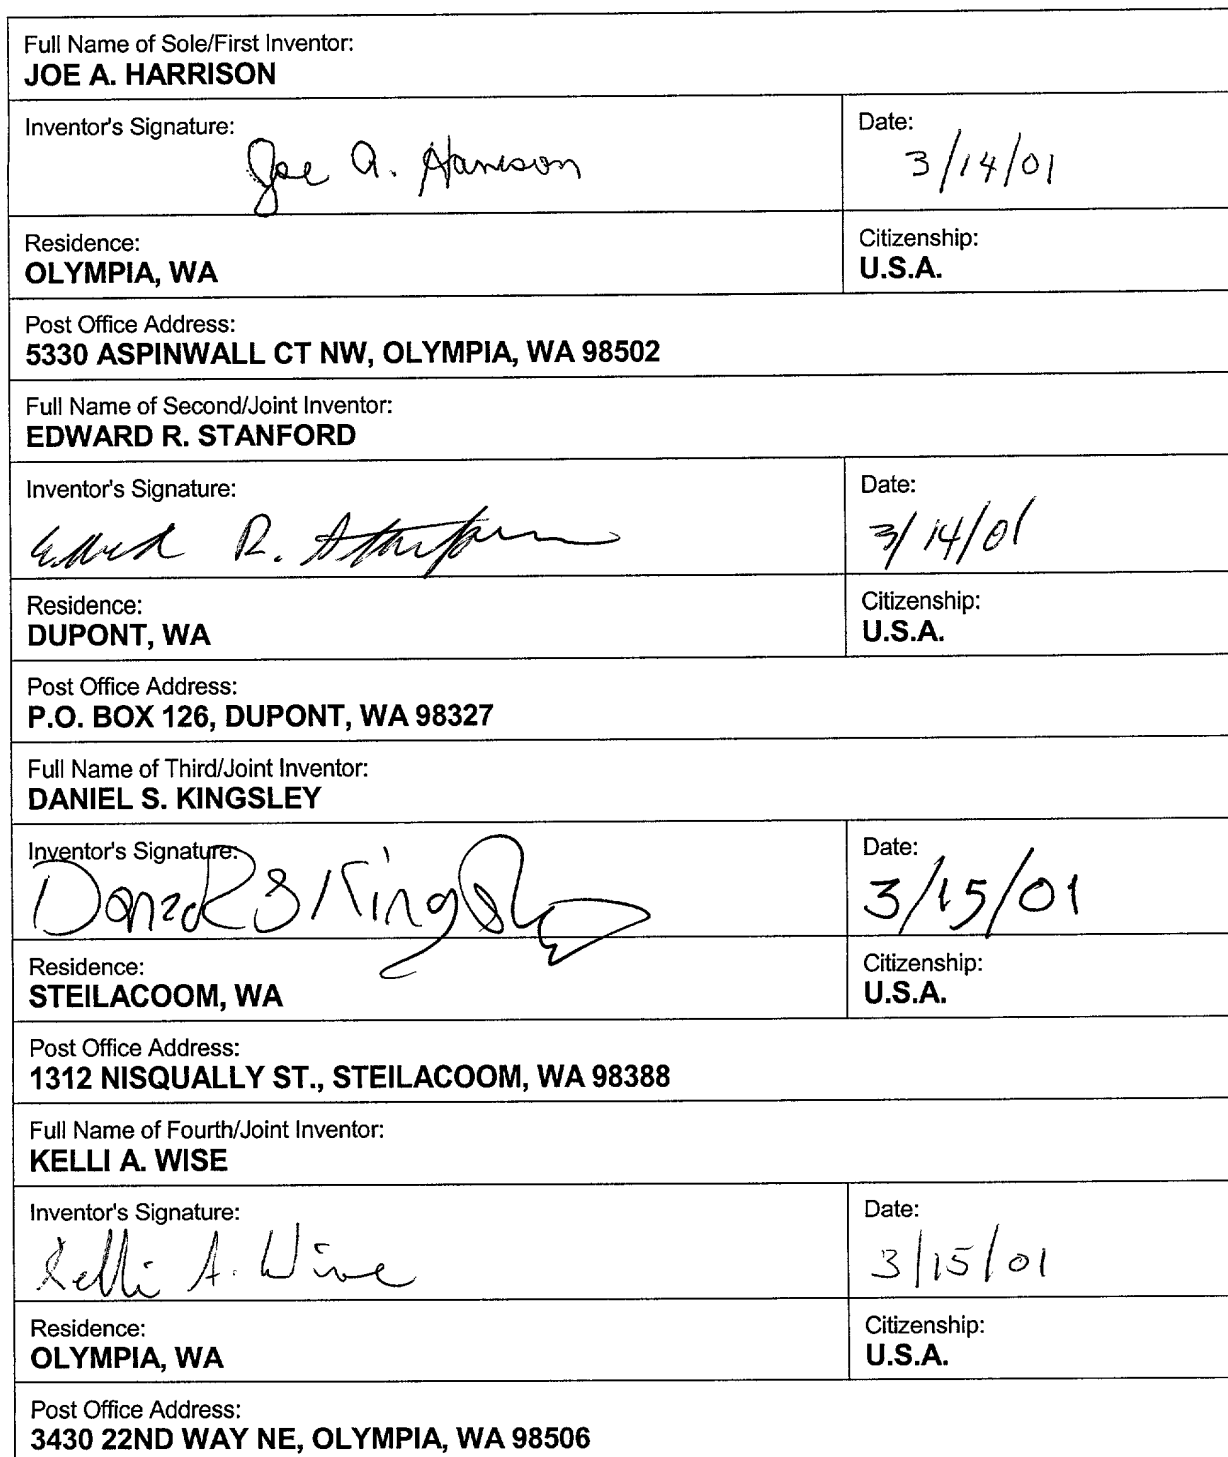 Full Name of Sole/First Inventor:
JOE A. HARRISON
Inventor's Signature: Date:
Joe A. Harrison 3/14/01
Residence: Citizenship:
OLYMPIA, WA U.S.A.
Post Office Address:
5330 ASPINWALL CT NW, OLYMPIA, WA 98502
Full Name of Second/Joint Inventor:
EDWARD R. STANFORD
Inventor's Signature: Date:
Edward R. Stanford 3/14/01
Residence: Citizenship:
DUPONT, WA U.S.A.
Post Office Address:
P.O. BOX 126, DUPONT, WA 98327
Full Name of Third/Joint Inventor:
DANIEL S. KINGSLEY
Inventor's Signature: Date:
Daniel S Kingsley 3/15/01
Residence: Citizenship:
STEILACOOM, WA U.S.A.
Post Office Address:
1312 NISQUALLY ST., STEILACOOM, WA 98388
Full Name of Fourth/Joint Inventor:
KELLI A. WISE
Inventor's Signature: Date:
Kelli A. Wise 3/15/01
Residence: Citizenship:
OLYMPIA, WA U.S.A.
Post Office Address:
3430 22ND WAY NE, OLYMPIA, WA 98506